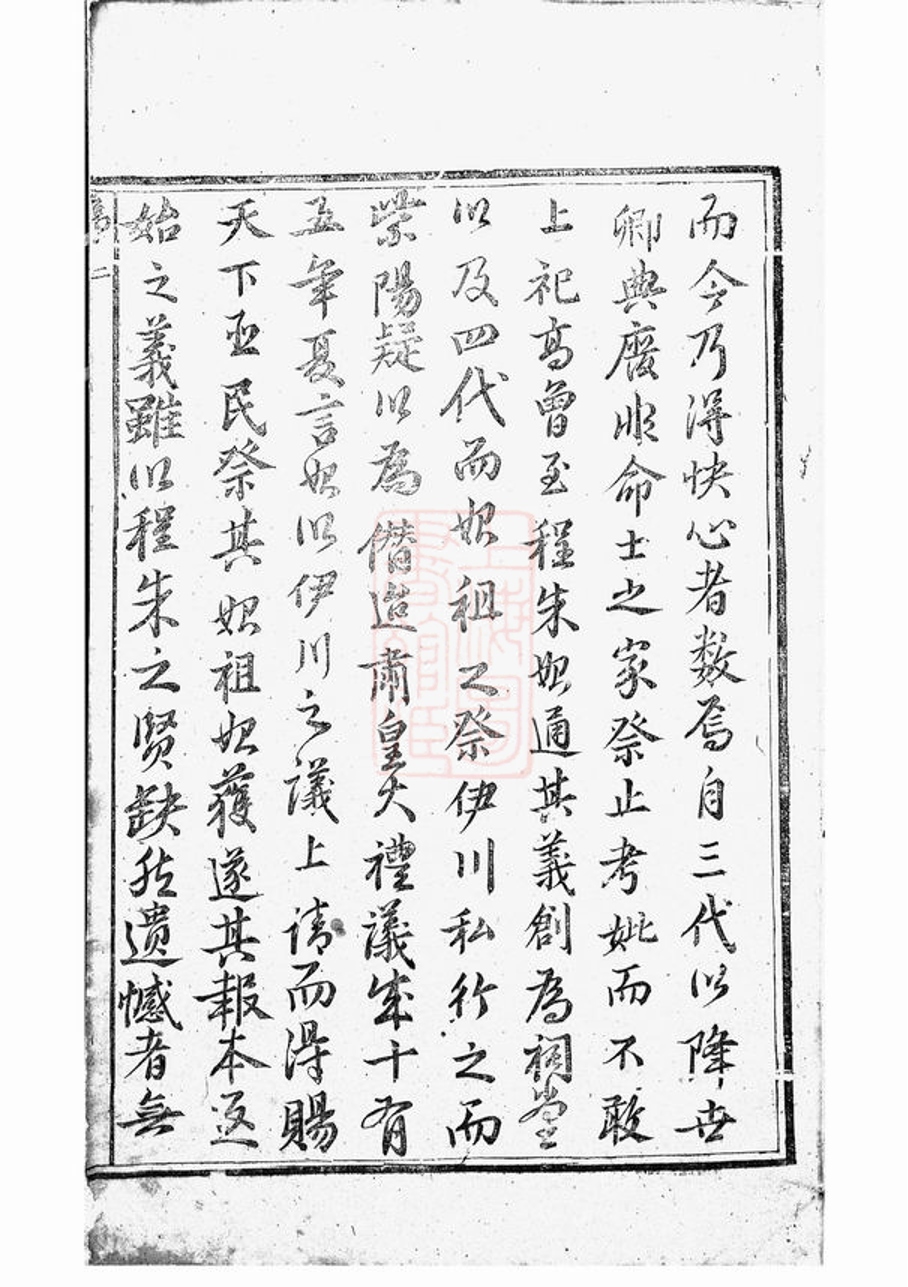 而今乃得快心者数焉自三代以降世
卿典废非命士之家祭止考妣而不敢
上祀高曾至程朱始通其義創為祠堂
以及四代而始祖之祭伊川私行之而
紫陽疑以為僭迨肅皇大禮議成十有
五年夏言始以伊川之議上请而得賜
天下臣民祭其始祖始獲遂其報本返
始之義雖以程朱之贤缺然遗憾者無
二